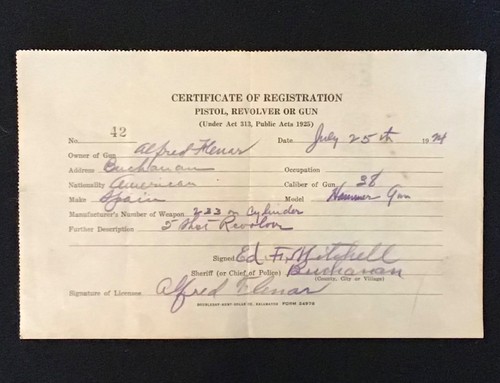 CERTIFICATE OF REGISTRATION
PISTOL, REVOLVER OR GUN
(Under Act 313, Public Acts 1925)
No. 42 Date July 25th 19
Owner of Gun Alfred Flenar
Address Buchanan Occupation
Nationality American Caliber of Gun 38
Make Spain Model Hammer Gun
Manufacturer's Number of Weapon 233 on Cylinder
Further Description 5 Shot Revolver
Signed Ed. F. Mitchell
Sheriff (or Chief of Police) Buchanan
(County, City or Village)
Signature of Licensee Alfred Flenar
DOUBLEDAY-HUNT-DOLAN CO. KALAMAZOO FORM